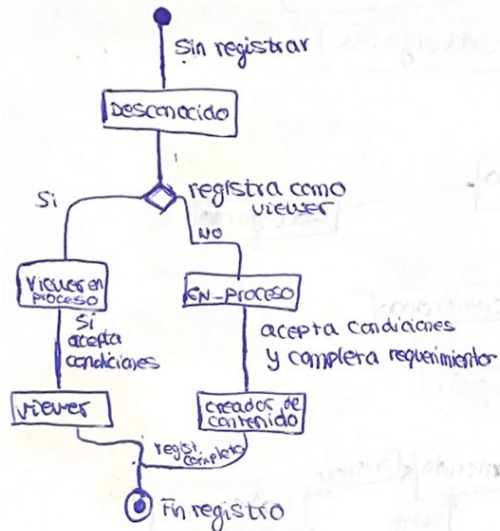 Sin registrar
Desconocido
registra como
viewer
Si
NO
Viewer en
proceso
EN-PROCESO
Si
acepta
condiciones
acepta condiciones
y completa requerimientor
viewer
creador de
contenido
regist.
completo
Fin registro